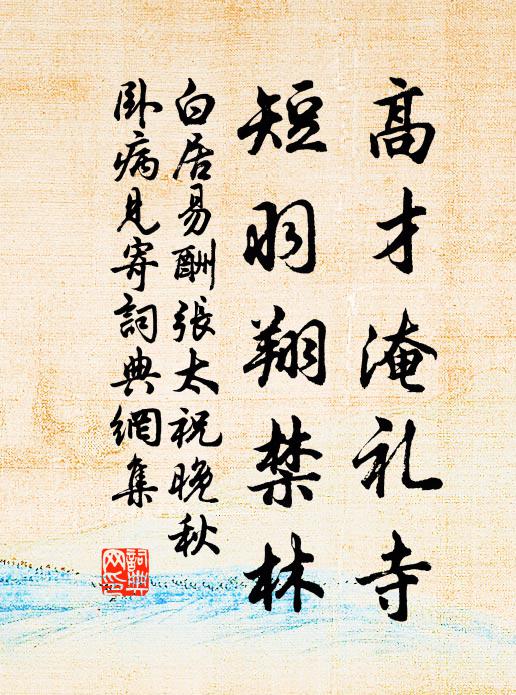 高才淹礼寺
短羽翔禁林
白居易酬張太祝晚秋
卧病見寄詞典網集